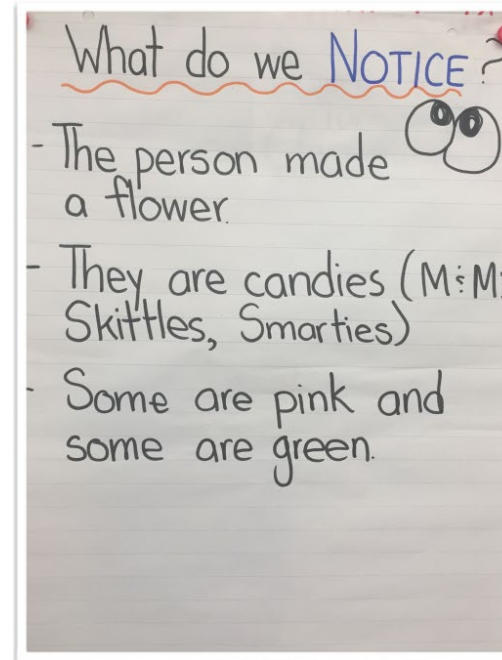 What do we NOTICE?
- The person made
a flower.
- They are candies (M&M
Skittles, Smarties)
- Some are pink and
some are green.